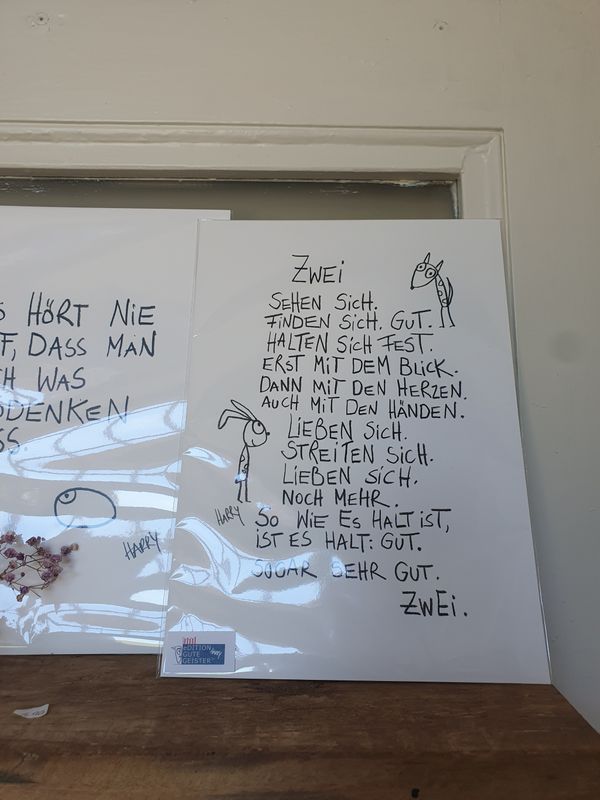 HÖRT NIE
DASS MAN
WAS
SS.
HARRY
ZWEI
SEHEN SICH.
FINDEN SICH. GUT.
HALTEN SICH FEST.
ERST MIT DEM BLICK.
DANN MIT DEN HERZEN.
AUCH MIT DEN HÄNDEN.
LIEBEN SICH.
STREITEN SICH.
LIEBEN SICH.
NOCH MEHR.
HARRY
SO WIE ES HALT IST,
IST ES HALT: GUT.
SOGAR SEHR GUT.
ZWEI.
EDITION
GUTE
GEISTER